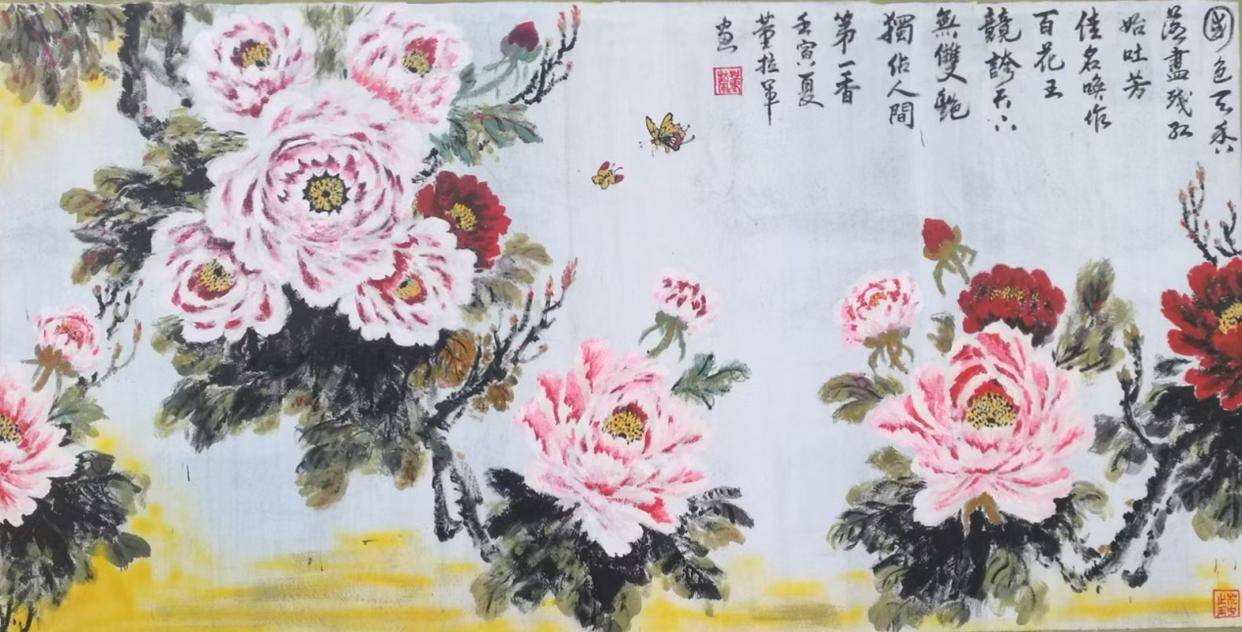 國色天香
落盡殘红
始吐芳
佳名唤作
百花王
競誇天下
無雙艷
獨佔人間
第一香
壬寅夏
董拉軍
画